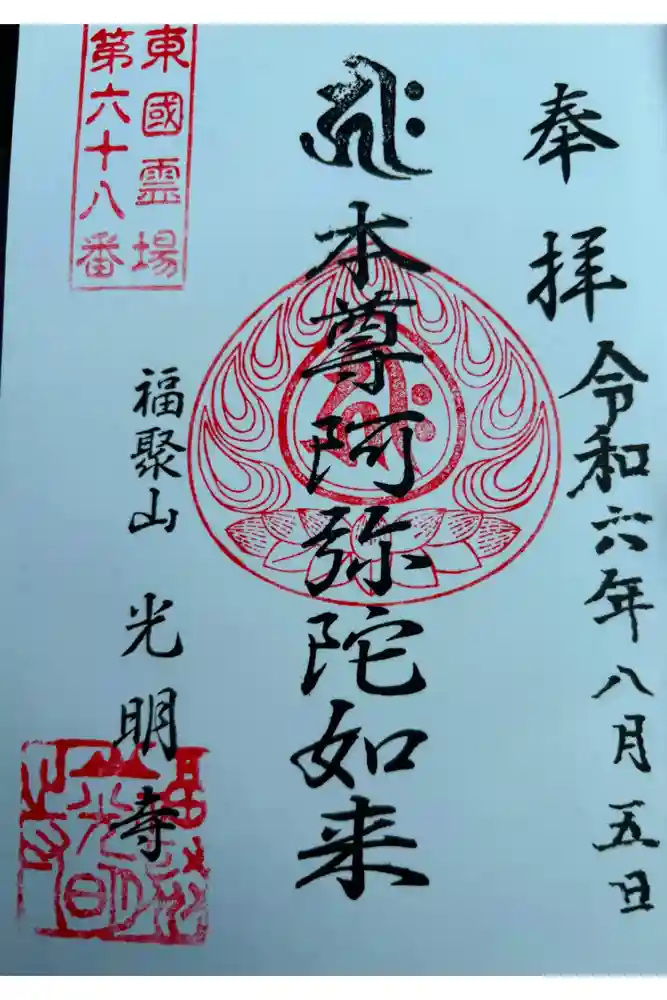 奉拝
令和六年八月五日
ह्रीः
本尊阿弥陀如来
東國霊場
第六十八番
福聚山
光明寺